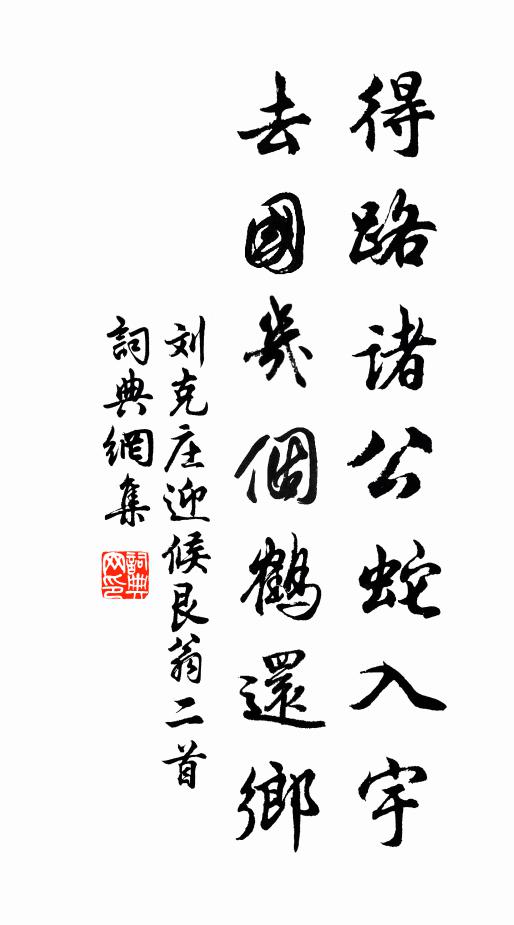 得路諸公蛇入宇
去國幾個鶴還鄉
刘克庄迎候艮翁二首
詞典網集
詞典网印